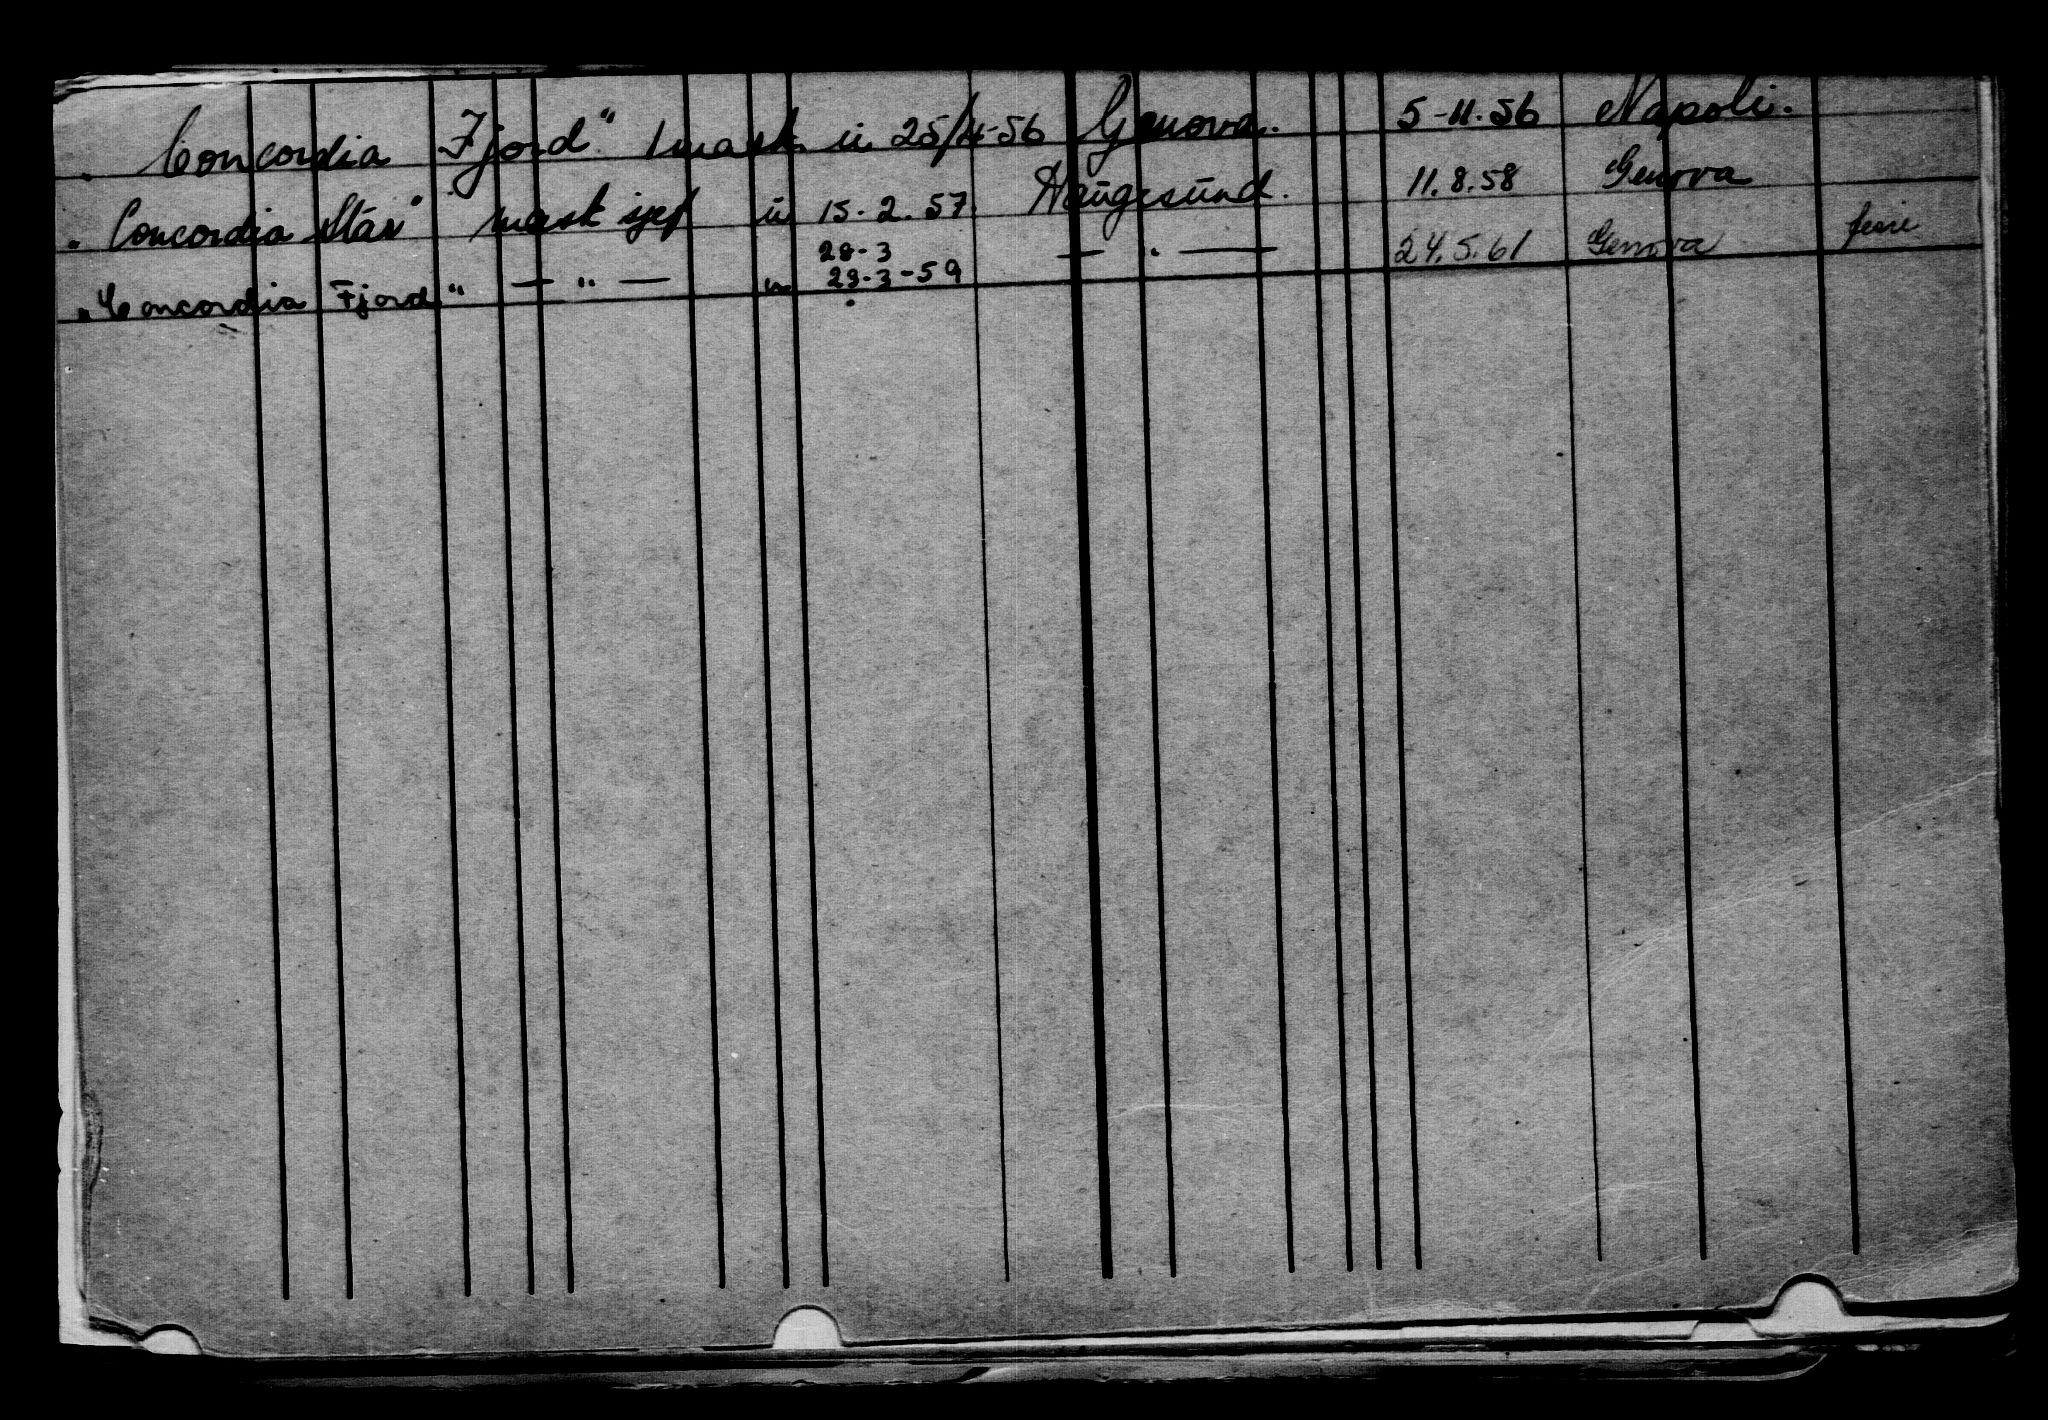 „Concordia Fjord“ 1 mask. u. 25/4-56 Genova. 5-11.56 Napoli.
„Concordia Star“ mask sjef u 15.2.57. Haugesund. 11.8.58 Genova
28-3
„Concordia Fjord“ — „ — u 28-3-59 — „ — 24.5.61 Genova ferie